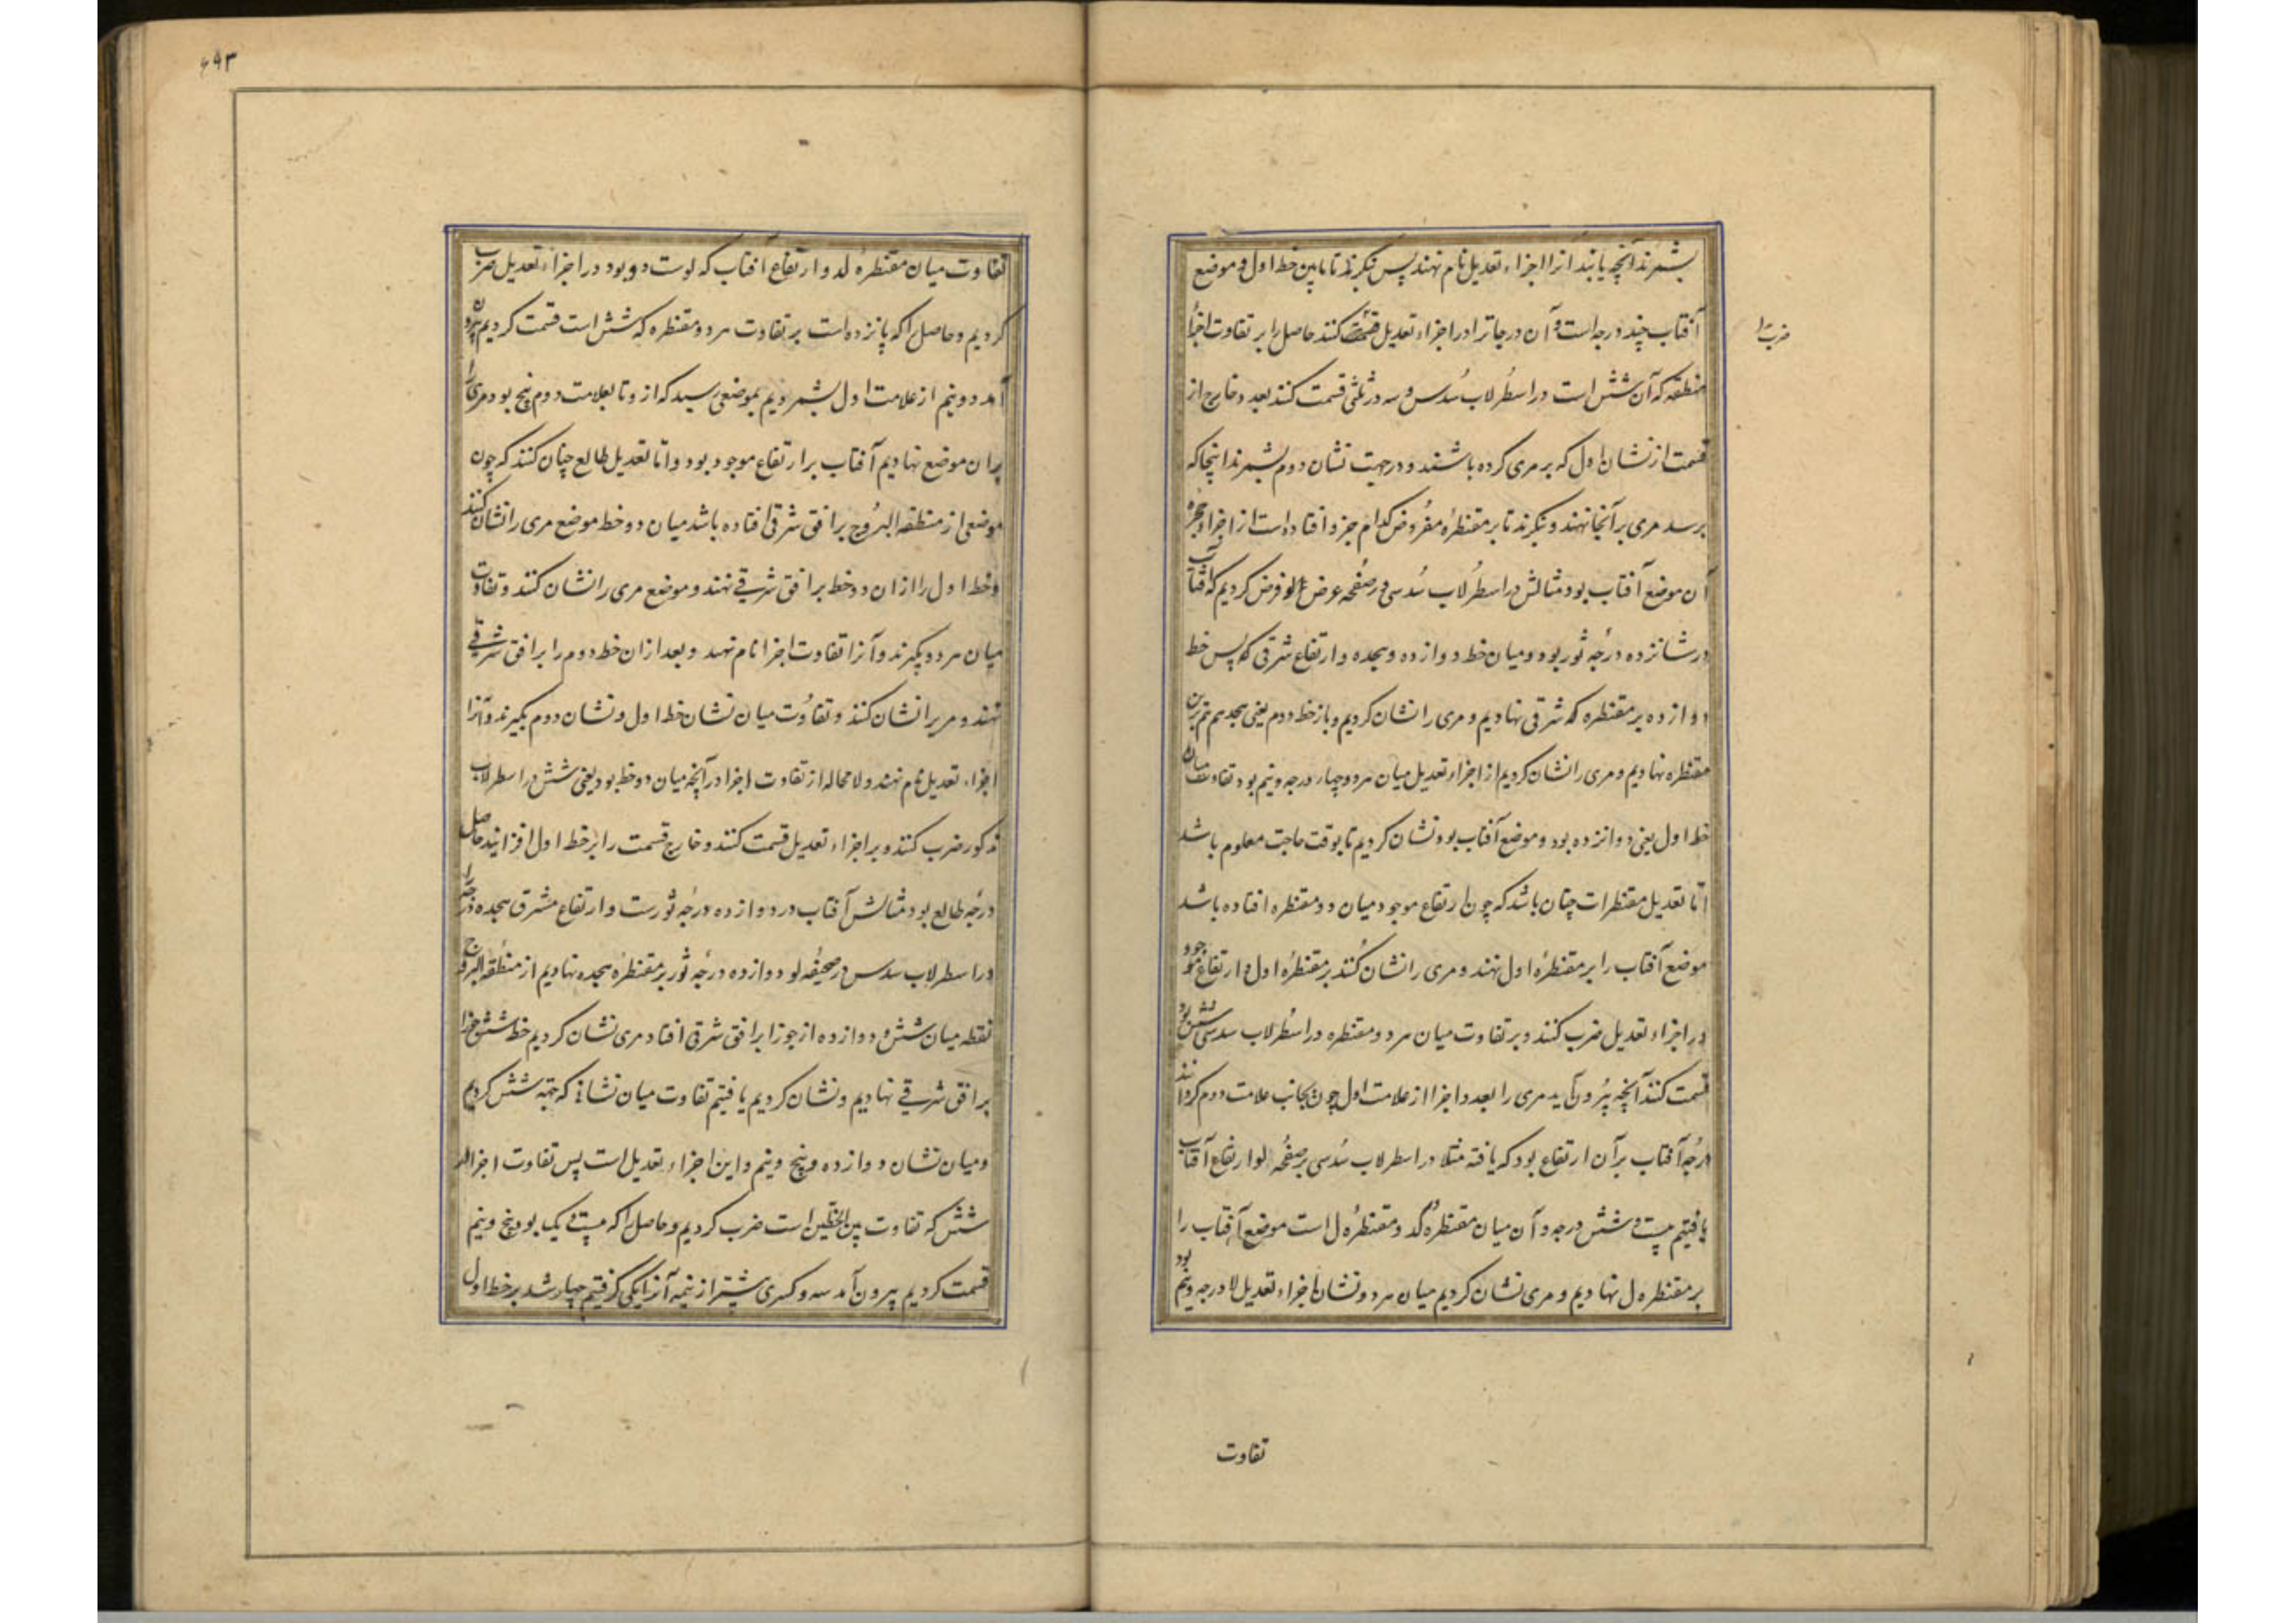 بشمرند آنچه یابند آنرا اجزاء تعدیل نام نهند پس بنگرند تا ما بین خط اول و موضع
آفتاب چند درجه است و آن درجاترا در اجزاء تعدیل قسمت کنند حاصل را بر تفاوت اجزاء
ضرب ا
منطقه که آن شش است در اسطُرلاب سُدس و سه در ثلثی قسمت کنند بعد و خارج از
قسمت از نشان اول که بر مری کرده باشند و در جهت نشان دوم بشمرند اینجا که
برسد مری بر آنجا نهند و بنگرند تا بر مقنطرهٔ مفروض کدام جزو افتاده است از اجزاء
آن موضع آفتاب بود مثالش در اسطرلاب سُدسی در صفحه عرض لو فرض کردیم که آفتاب
در شانزده درجه ثور بود و میان خط دوازده و هجده و ارتفاع شرقی که پس خط
دوازده بر مقنطره که شرقی نهادیم و مری را نشان کردیم و باز خط دوم یعنی هجدهم هم برین
مقنطره نهادیم و مری را نشان کردیم از اجزاء تعدیل میان هر دو چهار درجه و نیم بود تفاوت میان
خط اول یعنی دوانزده بود و موضع آفتاب بود نشان کردیم تا بوقت حاجت معلوم باشد
امّا تعدیل مقنطرات چنان باشد که چون ارتفاع موجود میان دو مقنطره افتاده باشد
موضع آفتاب را بر مقنطرهٔ اول نهند و مری را نشان کنند بر مقنطرهٔ اول و ارتفاع موجود
در اجزاء تعدیل ضرب کنند و بر تفاوت میان هر دو مقنطره در اسطُرلاب سدسی شش بود
قسمت کنند آنچه بیرون آید مری را بعدد اجزا از علامت اول چون بجانب علامت دوم گردانند
درجه آفتاب بر آن ارتفاع بود که یافته مثلا در اسطرلاب سُدسی بر صفحهٔ لو ارتفاع آفتاب
یافتیم بیست و شش درجه و آن میان مقنطرهٔ کد و مقنطرهٔ ل است موضع آفتاب را
بر مقنطره ل نهادیم و مری نشان کردیم میان هر دو نشان اجزاء تعدیل درجه و نیم بود
تفاوت
۶۹۳
تفاوت میان مقنطرهٔ لد و ارتفاع آفتاب که لوست دو بود در اجزاء تعدیل ضرب
کردیم و حاصل را که پانزده است بر تفاوت هر دو مقنطره که شش است قسمت کردیم بیرون
آمد دو و نیم از علامت اول بشمردیم بموضعی رسید که از و تا بعلامت دوم پنج بود مری را
بران موضع نهادیم آفتاب بر ارتفاع موجود بود و امّا تعدیل طالع چنان کنند که چون
موضعی از منطقه البروج بر افق شرقی افتاده باشد میان دو خط موضع مری را نشان کنند
و خط اول را از ان دو خط بر افق شرقی نهند و موضع مری را نشان کنند و تفاوت
میان هر دو بگیرند و آنرا تفاوت اجزا نام نهند و بعد از ان خط دوم را بر افق شرقی
نهند و مری را نشان کنند و تفاوُت میان نشان خط اول و نشان دوم بگیرند و آنرا
اجزاء تعدیل نام نهند و لا محاله از تفاوت اجزا در آنچه میان دو خط بود یعنی شش در اسطرلاب
مذکور ضرب کنند و بر اجزاء تعدیل قسمت کنند و خارج قسمت را بر خط اول افزایند حاصل
درجه طالع بود مثالش آفتاب در دوازده درجه ثورست و ارتفاع مشرق هجده درجه را
در اسطرلاب سدس در صحیفه لو دوازده درجه ثور بر مقنطرهٔ هجده نهادیم از منطقه البروج
نقطه میان شش و دوازده از جوزا بر افق شرقی افتاد مری نشان کردیم خط شش جوزا
بر افق شرقی نهادیم و نشان کردیم یافتیم تفاوت میان نشانی که بهته شش کردیم
و میان نشان دوازده و پنج و نیم و این اجزاء تعدیل است پس تفاوت اجزا در
شش که تفاوت بین الخطین است ضرب کردیم و حاصل را که بیست و یک بود بر پنج و نیم
قسمت کردیم بیرون آمد سه و کسری بیشتر از نیمه آنرا یکی گرفتیم چهار شد بر خط اول